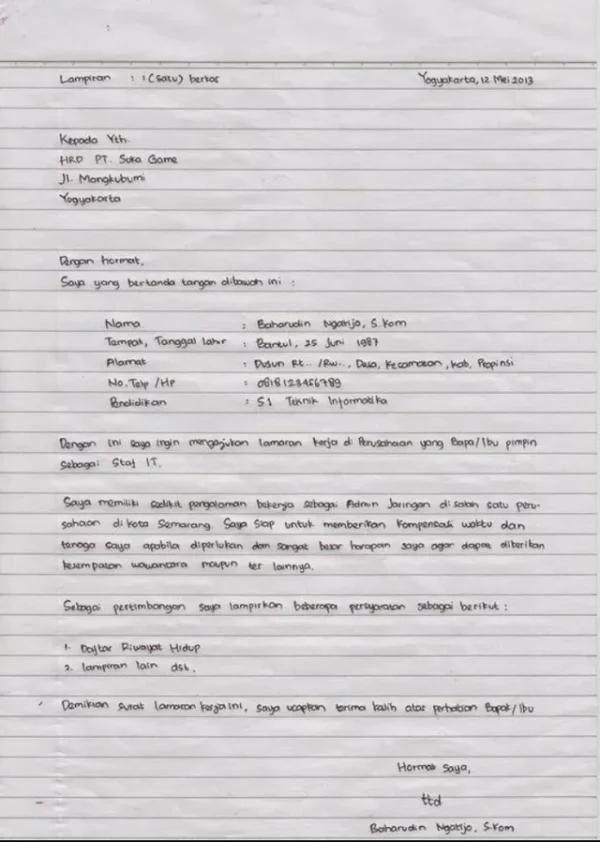 Lampiran : 1 (satu) berkas Yogyakarta, 12 Mei 2013
Kepada Yth.
HRD PT. Suka Game
Jl. Mangkubumi
Yogyakarta
Dengan hormat,
Saya yang bertanda tangan dibawah ini :
Nama : Baharudin Ngatijo, S.Kom
Tempat, Tanggal lahir : Bantul, 25 Juni 1987
Alamat : Dusun Rt.. /Rw.., Desa, Kecamatan, Kab, Propinsi
No. Telp /HP : 0818123456789
Pendidikan : S1 Teknik Informatika
Dengan ini saya ingin mengajukan lamaran kerja di Perusahaan yang Bapa/Ibu pimpin
sebagai Staf IT.
Saya memiliki sedikit pengalaman bekerja sebagai Admin Jaringan di salah satu peru-
sahaan di kota Semarang. Saya Siap untuk memberikan kompensasi waktu dan
tenaga saya apabila diperlukan dan sangat besar harapan saya agar dapat diberikan
kesempatan wawancara maupun tes lainnya.
Sebagai pertimbangan saya lampirkan beberapa persyaratan sebagai berikut :
1. Daftar Riwayat Hidup
2. lampiran lain dsb.
Demikian surat lamaran kerja ini, saya ucapkan terima kasih atas perhatian Bapak/Ibu
Hormat Saya,
ttd
Baharudin Ngatijo, S.Kom